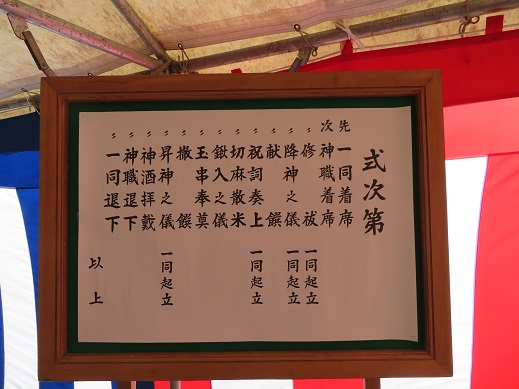 式次第
先 一同着席
次 神職着席
〃 修祓 一同起立
〃 降神之儀 一同起立
〃 献饌
〃 祝詞奏上 一同起立
〃 切麻散米
〃 鍬入之儀
〃 玉串奉奠
〃 撤饌
〃 昇神之儀 一同起立
〃 神酒拝戴
〃 神職退下
〃 一同退下
以上